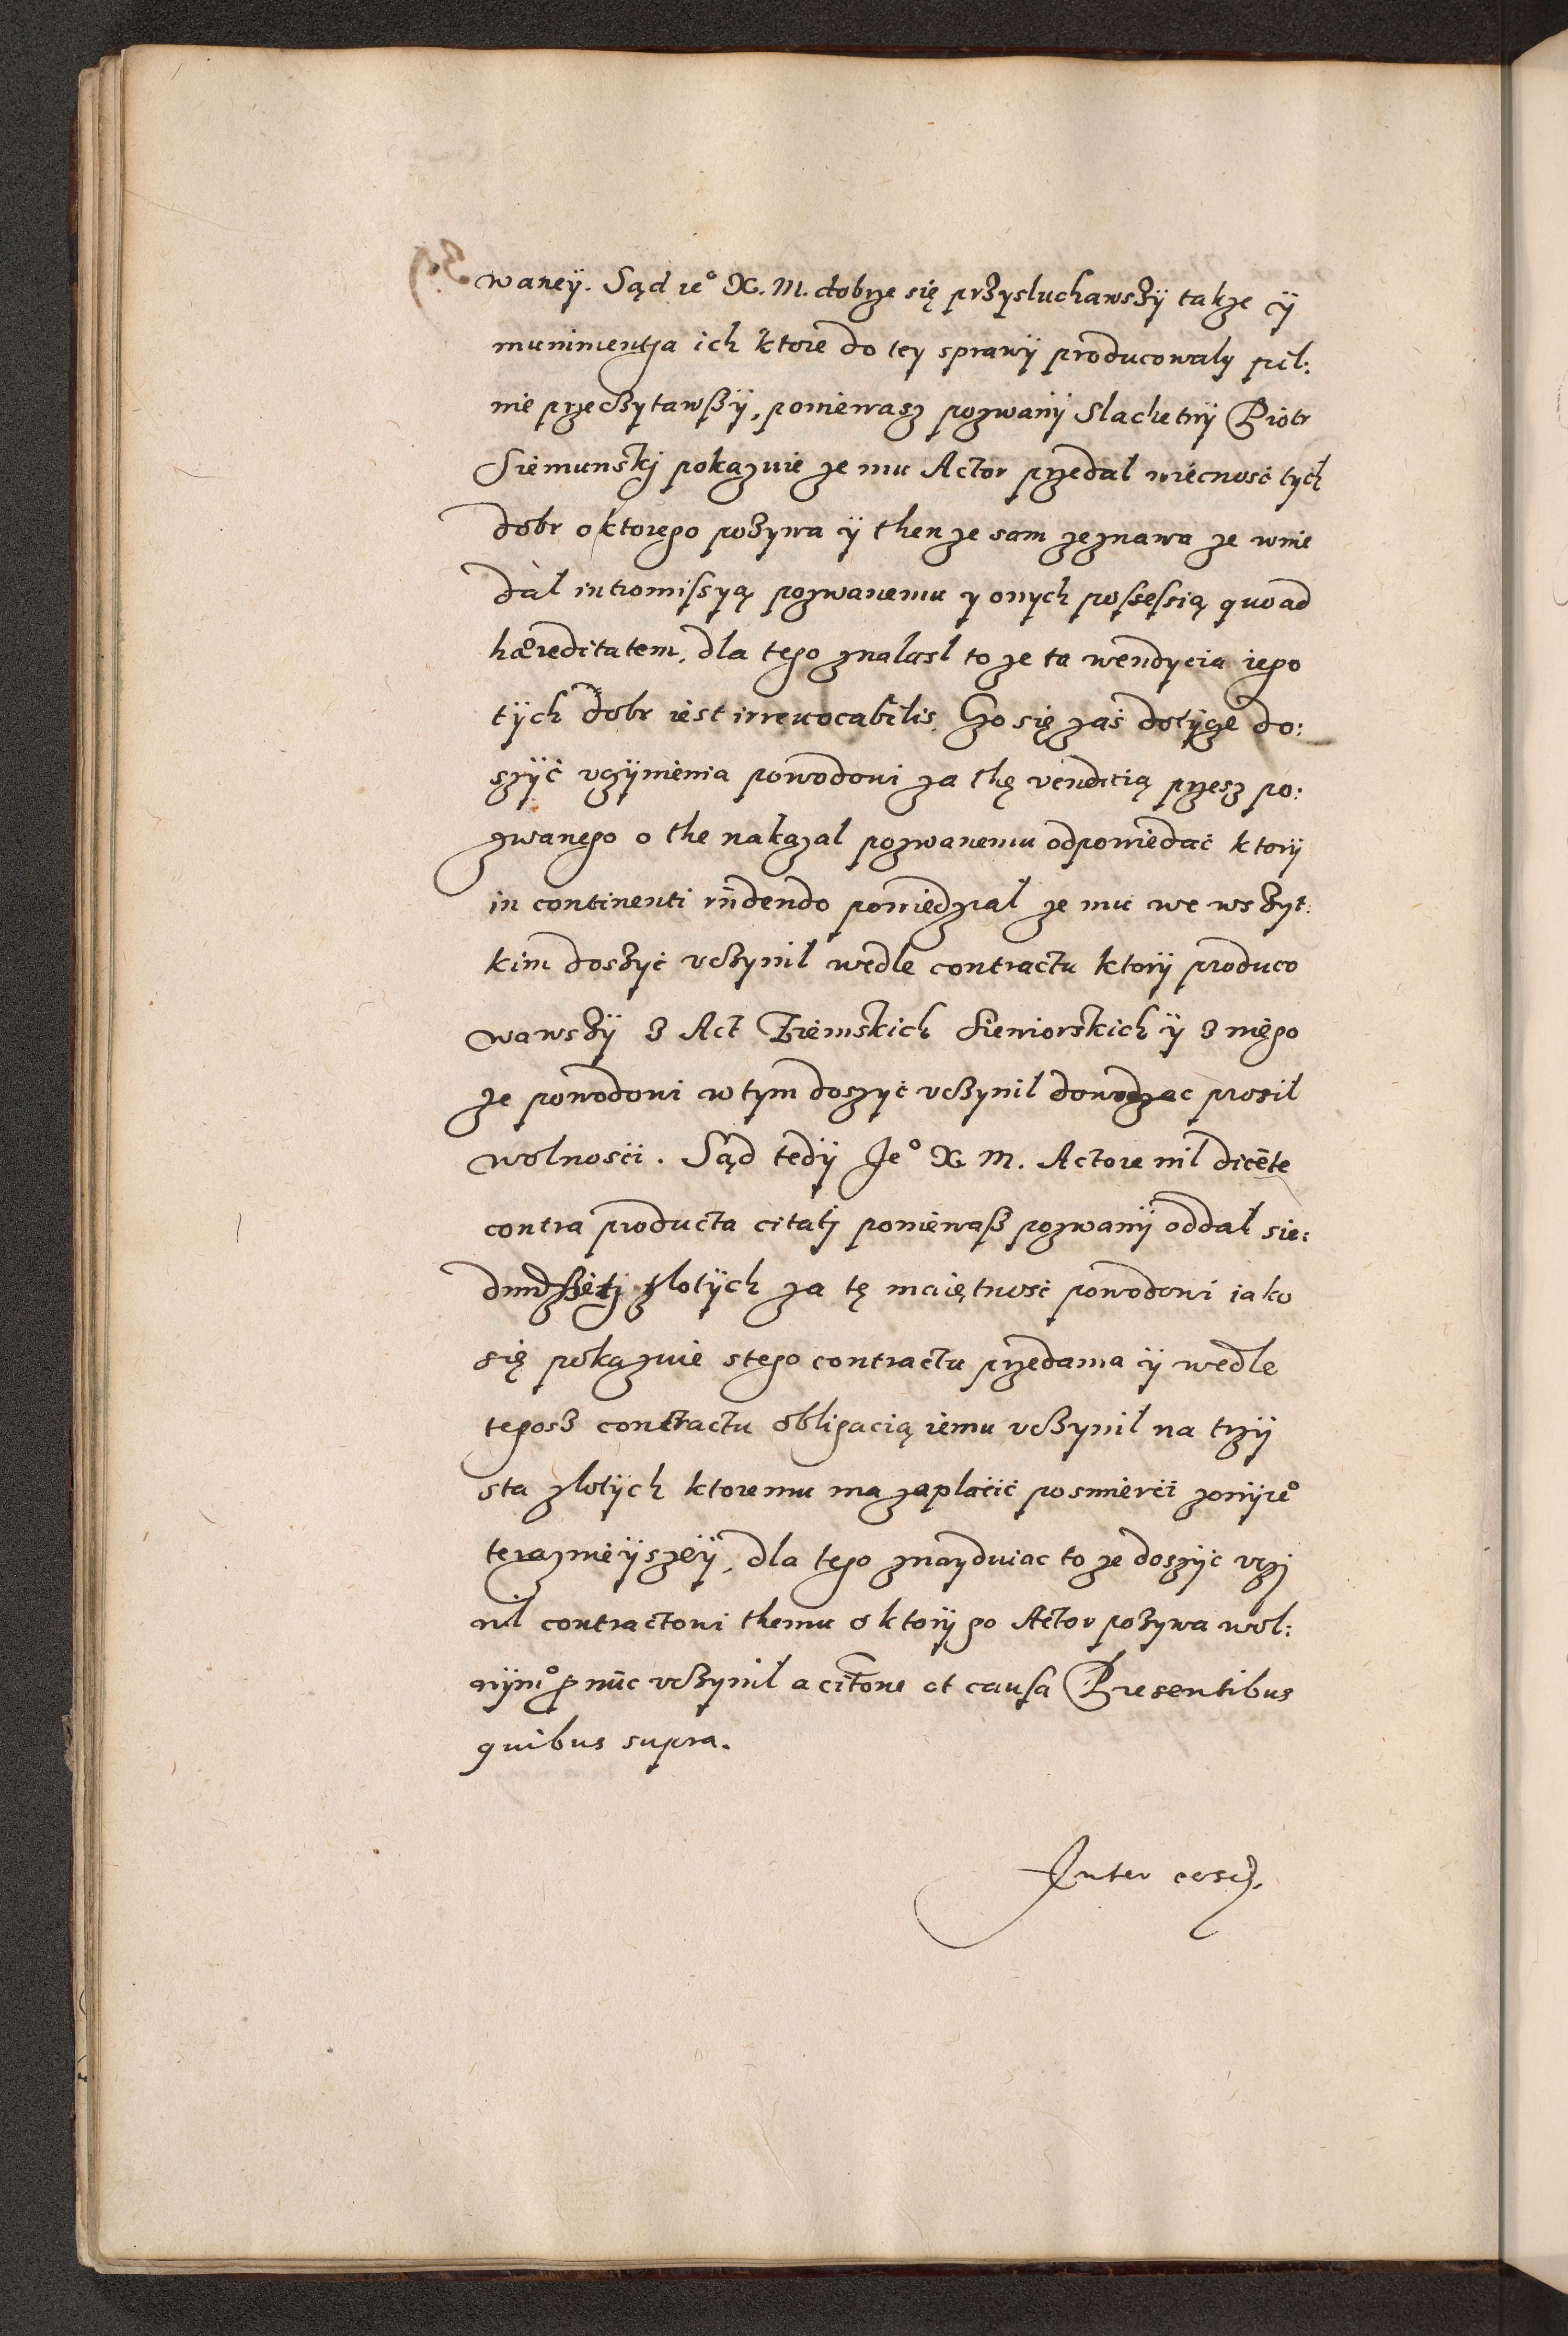 waneÿ. Sąd ie° X. M. dobrze się przysluchawszÿ takze ÿ
munimentja ich ktore do tey sprawÿ producowaly pil:
nie przeczytawszÿ, poniewasz pozwanÿ Slachetnÿ Piotr
Siemunskj pokazuie ze mu Actor przedal wiecnosć tych
dobr o ktorego pozywa ÿ then ze sam zeznawa ze wnie
dàl intromissyą pozwanemu y onych possessią quoad
hæreditatem, dla tego znalasl to ze ta wendycia iego
tÿch dobr iest irreuocabilis. Czo się zaś dotÿcze do:
szÿć vczÿnienia powodowi za thę venditią przesz po:
zwanego o the nakazal pozwanemu odpowiedać ktorÿ
in continenti rñdendo powiedzial ze mu we wszyt:
kim doszyć vczynil wedle contractu ktorÿ produco
wawszÿ z Act Ziemskich Siewiorskich ÿ z niego
ze powodowi w tym doszyć vczynil dowodząc prosil
wolnosci. Sąd tedÿ Je° X. M. Actore nil dicēte
contra producta citatj poniewasz pozwanÿ oddal sie:
dmdziesiątj zlotÿch za tę maiętnosć powodowi iako
się pokazuie stego contractu przedania ÿ wedle
tegosz contractu obligacią iemu vczynil na trzÿ
sta zlotÿch ktoremu ma zaplacić po smierci zonÿ ie°
terazniéÿszéÿ, dla tego znayduiac to ze doszÿc vczÿ
nil contractowi themu o ktorÿ go Actor pozywa wol:
nÿm° ꝓ nūc vczynil a citōne et causa Presentibus
quibus supra.
Inter eosd.